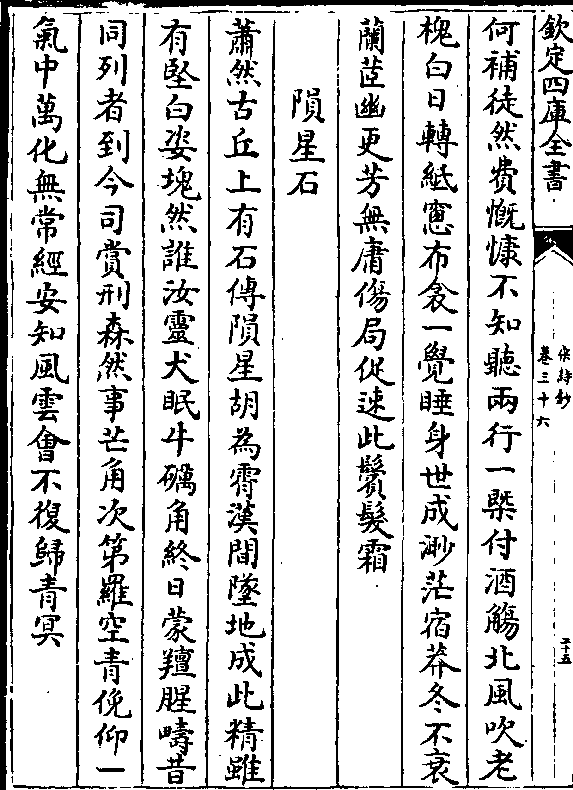 欽定四庫全書
宋詩鈔
卷三十六
二十五
何補徒然費慨慷不知聽兩行一槩付酒觴北風吹老
槐白日轉紙窻布衾一覺睡身世成渺茫宿莽冬不衰
蘭茝幽更芳無庸傷局促速此鬢髮霜
隕星石
蕭然古丘上有石傳隕星胡為霄漢間墜地成此精雖
有堅白姿塊然誰汝靈犬眠牛礪角終日蒙羶腥疇昔
同列者到今司賞刑森然事芒角次第羅空青俛仰一
氣中萬化無常經安知風雲會不復歸青冥